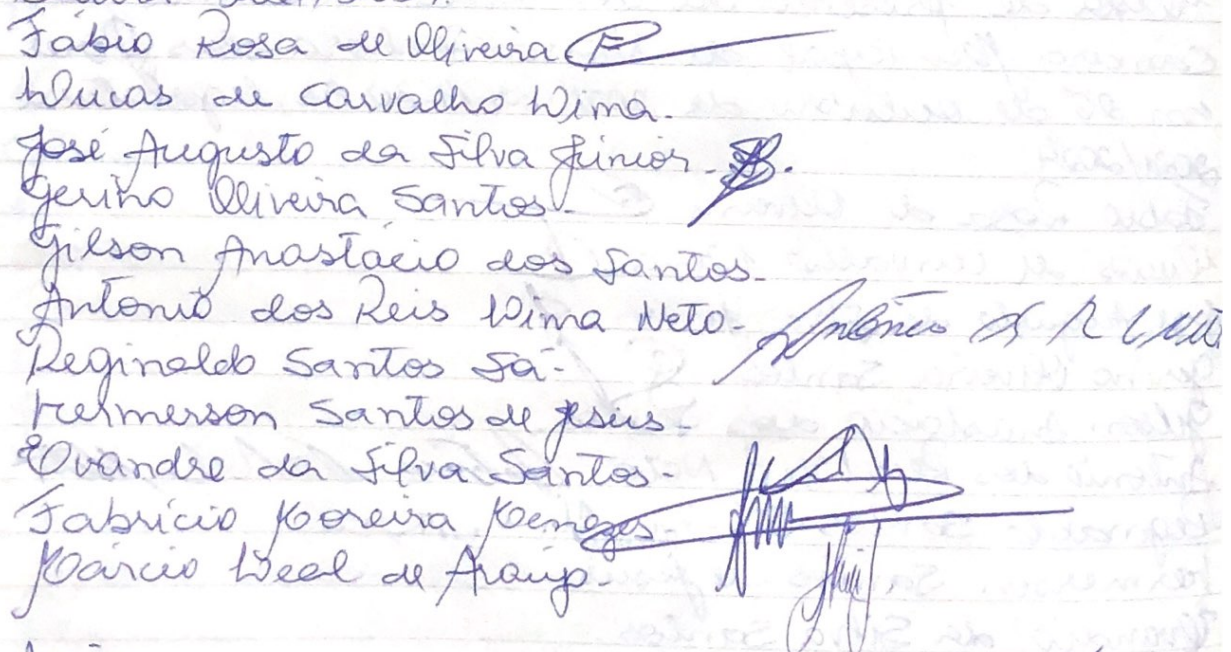 Fábio Rosa de Oliveira
Lucas de Carvalho Lima.
José Augusto da Silva Júnior.
Gerino Oliveira Santos.
Gilson Anastácio dos Santos.
Antonio dos Reis Lima Neto. Antônio R L
Reginaldo Santos Sá.
Kermerson Santos de Jesus.
Evandre da Silva Santos.
Fabrício Moreira Menezes
Márcio Leal de Araújo